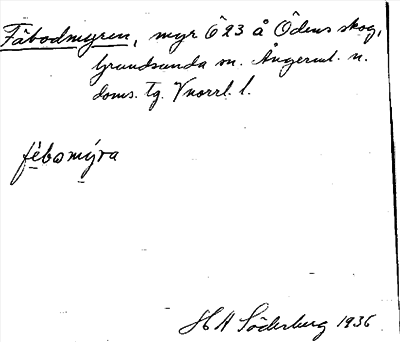 Fäbodmyren, myr Ö23 å Ödens skog,
Grundsunda sn. Ångerml. n.
doms. tg. Vnorrl. l.
fèbɷmýra
H A Söderberg 1936